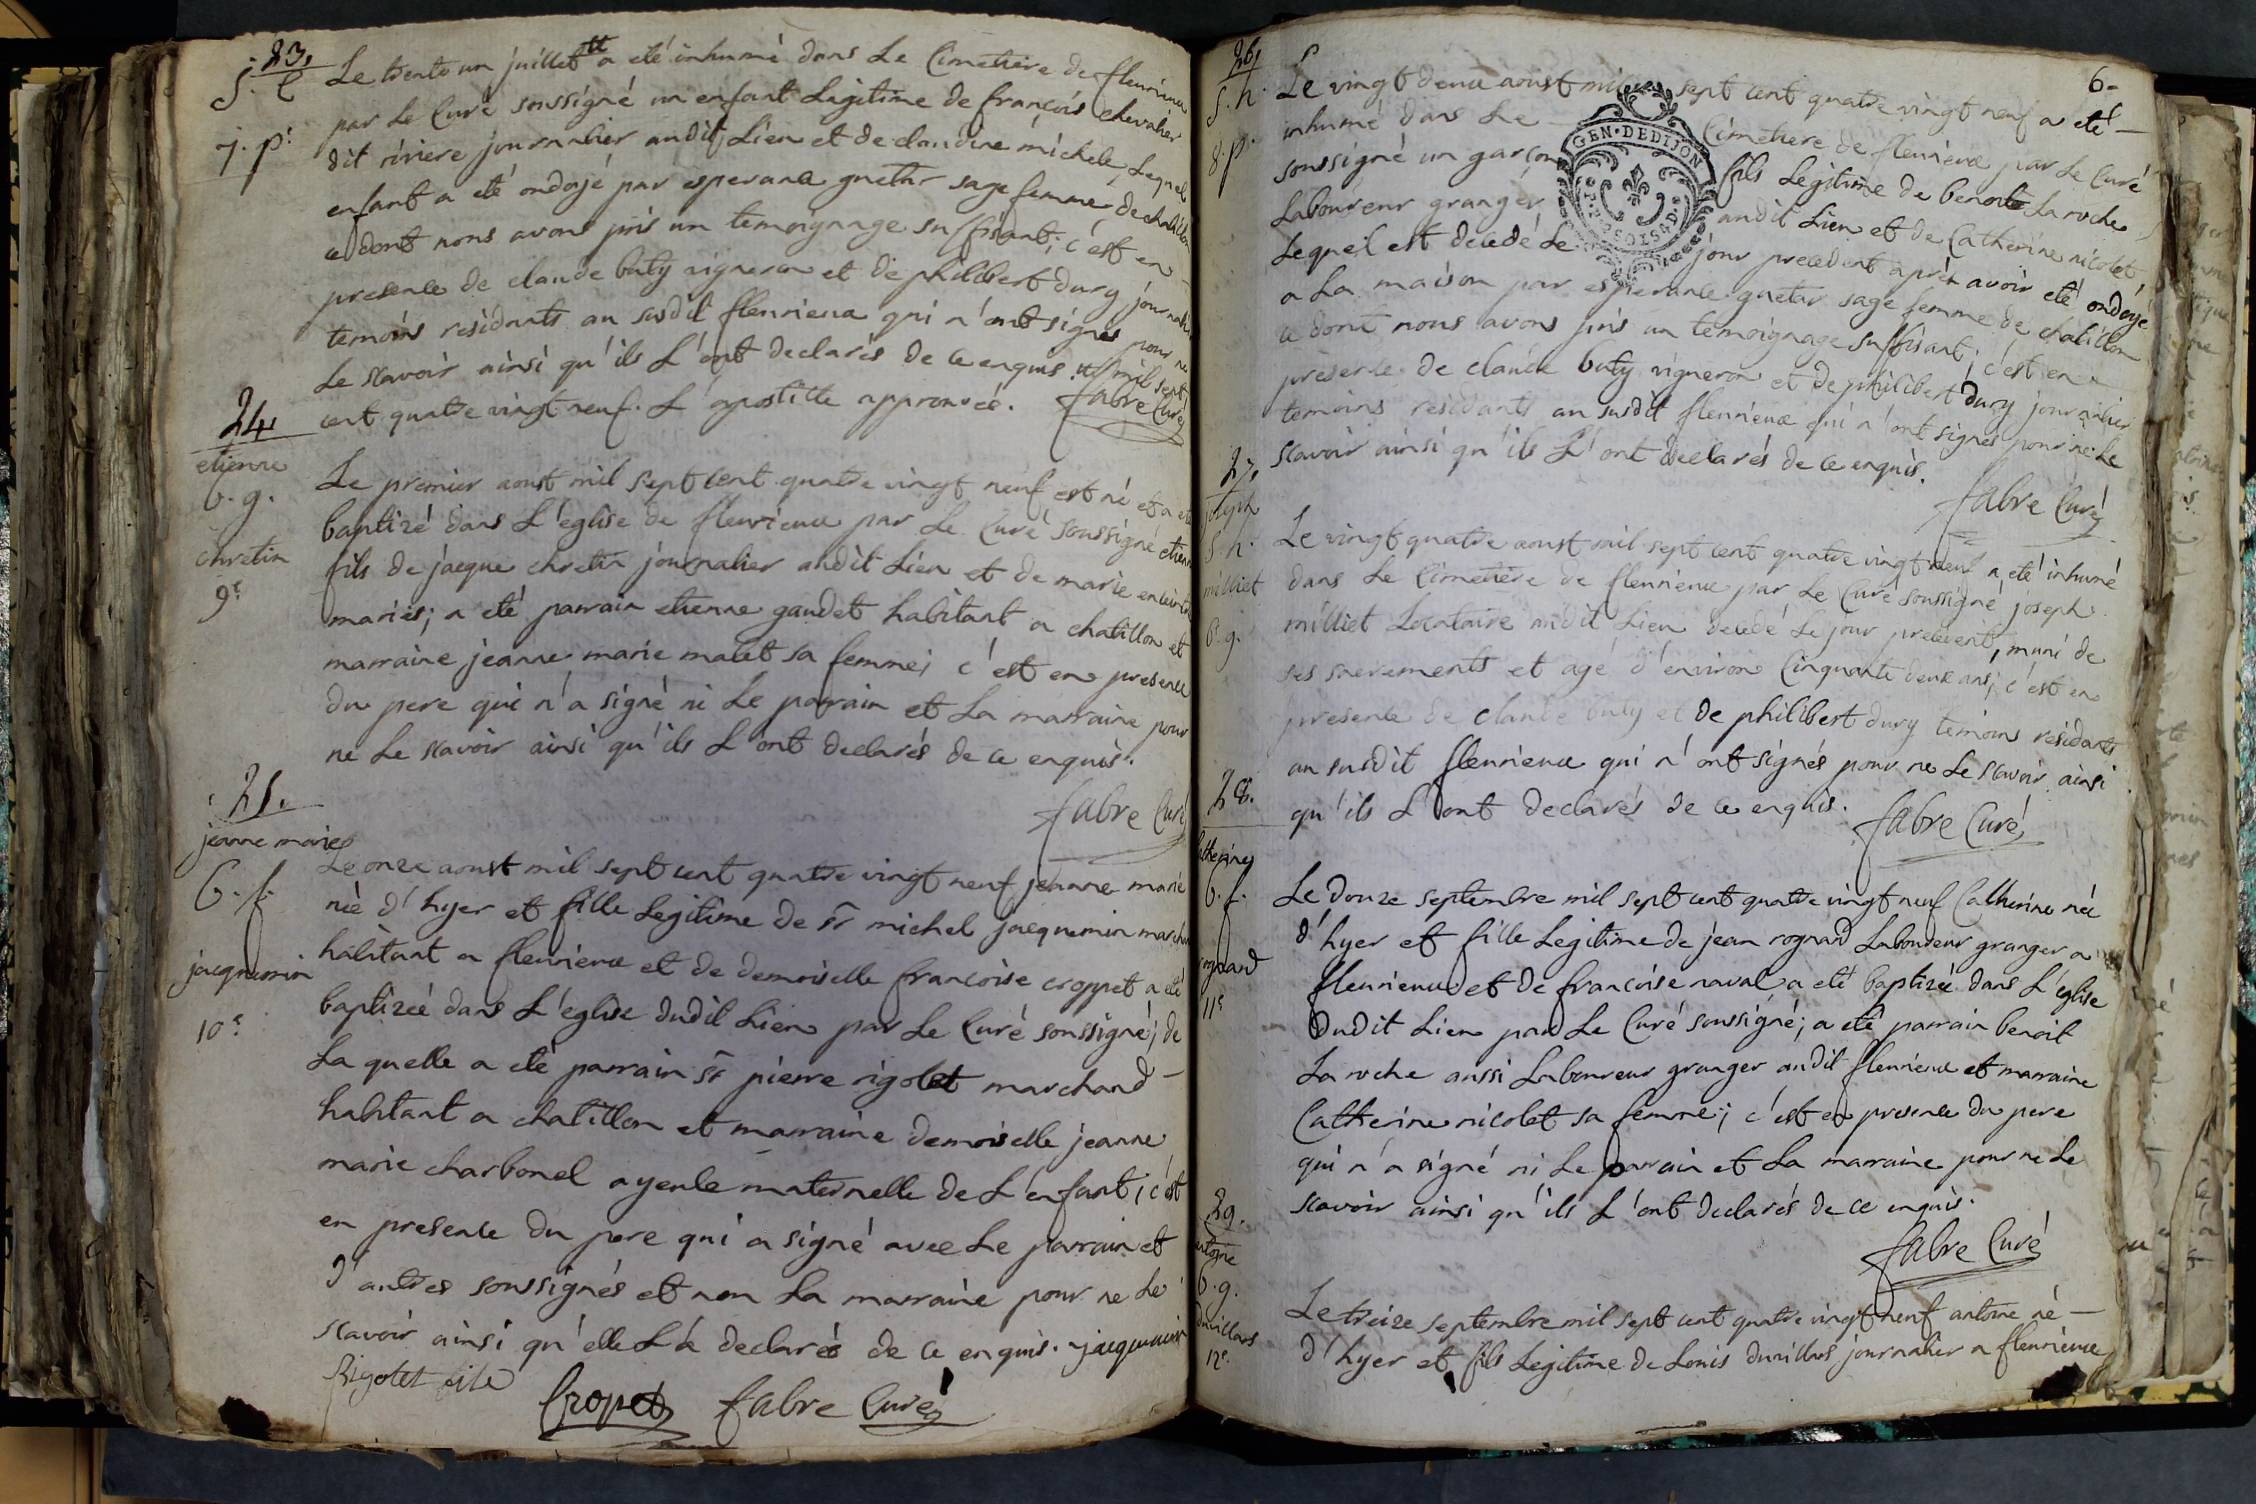 23.
S. E
7. p.
Le trente un juillet a été inhumé dans Le Cimetiere de fleurieux
par Le Curé soussigné un enfant Legitime de françois chevalier
dit riviere journalier audit Lieu et de claudine michele, Lequel
enfant a été ondoyé par esperance guetar sage femme de chatillon
ce dont nous avons pris un temoignage suffisant; c'est en
presence de claude buty vigneron et de philibert dury journalier
temoins residants au susdit fleurieux qui n'ont signés pour ne
Le scavoir ainsi qu'ils L'ont declarés de ce enquis. mil sept
cent quatre vingt neuf. L'apostille approuvée. fabre Curé
24
etienne
b. g.
chretin
9e
Le premier aoust mil sept cent quatre vingt neuf est né et a été
baptizé dans L'eglise de fleurieux par Le Curé soussigné etienne
fils de jacque chretin journalier audit Lieu et de marie
mariés; a été parrain etienne gaudet habitant a chatillon et
marraine jeanne marie matet sa femme; c'est en presence
du pere qui n'a signé ni Le parrain et La marraine pour
ne Le scavoir ainsi qu'ils L'ont declarés de ce enquis.
fabre Curé
25.
jeanne marie
b. f.
jacquemin
10e
Le onze aoust mil sept cent quatre vingt neuf jeanne marie
née d'hyer et fille Legitime de sr michel jacquemin marchand
habitant a fleurieux et de demoiselle francoise croppet a été
baptizée dans L'eglise dudit Lieu par Le Curé soussigné; de
La quelle a été parrain sr pierre rigolet marchand
habitant a chatillon et marraine demoiselle jeanne
marie charbonel ayeule maternelle de L'enfant; c'est
en presence du pere qui a signé avec Le parrain et
d'autres soussignés et non La marraine pour ne Le
scavoir ainsi qu'elle L'a declarés de ce enquis. jacquemin
Rigolet
Cropet fabre Curé
6.
26
S. h.
8. p.
GEN · DE DIJON
Le vingt deux aoust mil sept cent quatre vingt neuf a été
inhumé dans Le Cimetiere de fleurieux par Le Curé
soussigné un garçon fils Legitime de benoit La roche
Laboureur granger audit Lieu et de Catherine nicolet,
Lequel est decedé Le jour precedent après avoir été ondoyé
a La maison par esperance guetar sage femme de chatillon
ce dont nous avons pris un temoignage suffisant; c'est en
presence de claude buty vigneron et de philibert dury journalier
temoins residants au susdit fleurieux qui n'ont signés pour ne Le
scavoir ainsi qu'ils L'ont declarés de ce enquis.
fabre Curé
27.
joseph
S. h.
milliet
Le vingt quatre aoust mil sept cent quatre vingt neuf a été inhumé
dans Le Cimetiere de fleurieux par Le Curé soussigné joseph
milliet Locataire audit Lieu decedé Le jour precedent, muni de
ses sacrements et agé d'environ Cinquante deux ans; c'est en
presence de claude buty et de philibert dury temoins residants
au susdit fleurieux qui n'ont signés pour ne Le scavoir ainsi
qu'ils L'ont declarés de ce enquis. fabre Curé
28.
Catherine
b. f.
rognard
11e
Le douze septembre mil sept cent quatre vingt neuf Catherine née
d'hyer et fille Legitime de jean rognard Laboureur granger a
fleurieux et de francoise naval a été baptizée dans L'eglise
dudit Lieu par Le Curé soussigné; a été parrain benoit
La roche aussi Laboureur granger audit fleurieux et marraine
Catherine nicolet sa femme; c'est en presence du pere
qui n'a signé ni Le parrain et La marraine pour ne Le
scavoir ainsi qu'ils L'ont declarés de ce enquis.
fabre Curé
29.
antoine
b. g.
duvillars
12e
Le treize septembre mil sept cent quatre vingt neuf antoine né
d'hyer et fils Legitime de Louis duvillars journalier a fleurieux